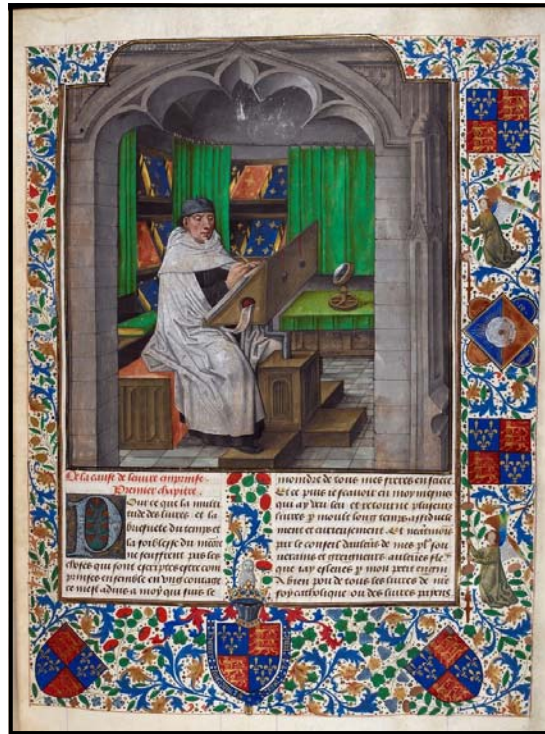 De la cause de leuure emprinse
Premier chapitre.
Pour ce que la multi
tude des liures et la
briefuete du temps et
la foiblesse du
ne seuffrent pas les
choses qui sont escriptes estre com
prinses ensemble en vng courage
ce mest aduis a moy qui suis le
moindre de tous mes freres en facie
Et ce puis ie scauoir en moy mesmes
qui ay leu et retourne pluseurs
liures long temps
ment et curieusement Et
par le conseil daulcuns de mes sou
uerains
que iay esleues mon petit engin
bien pou de tous les liures de nre
foy catholique ou des liures paiens